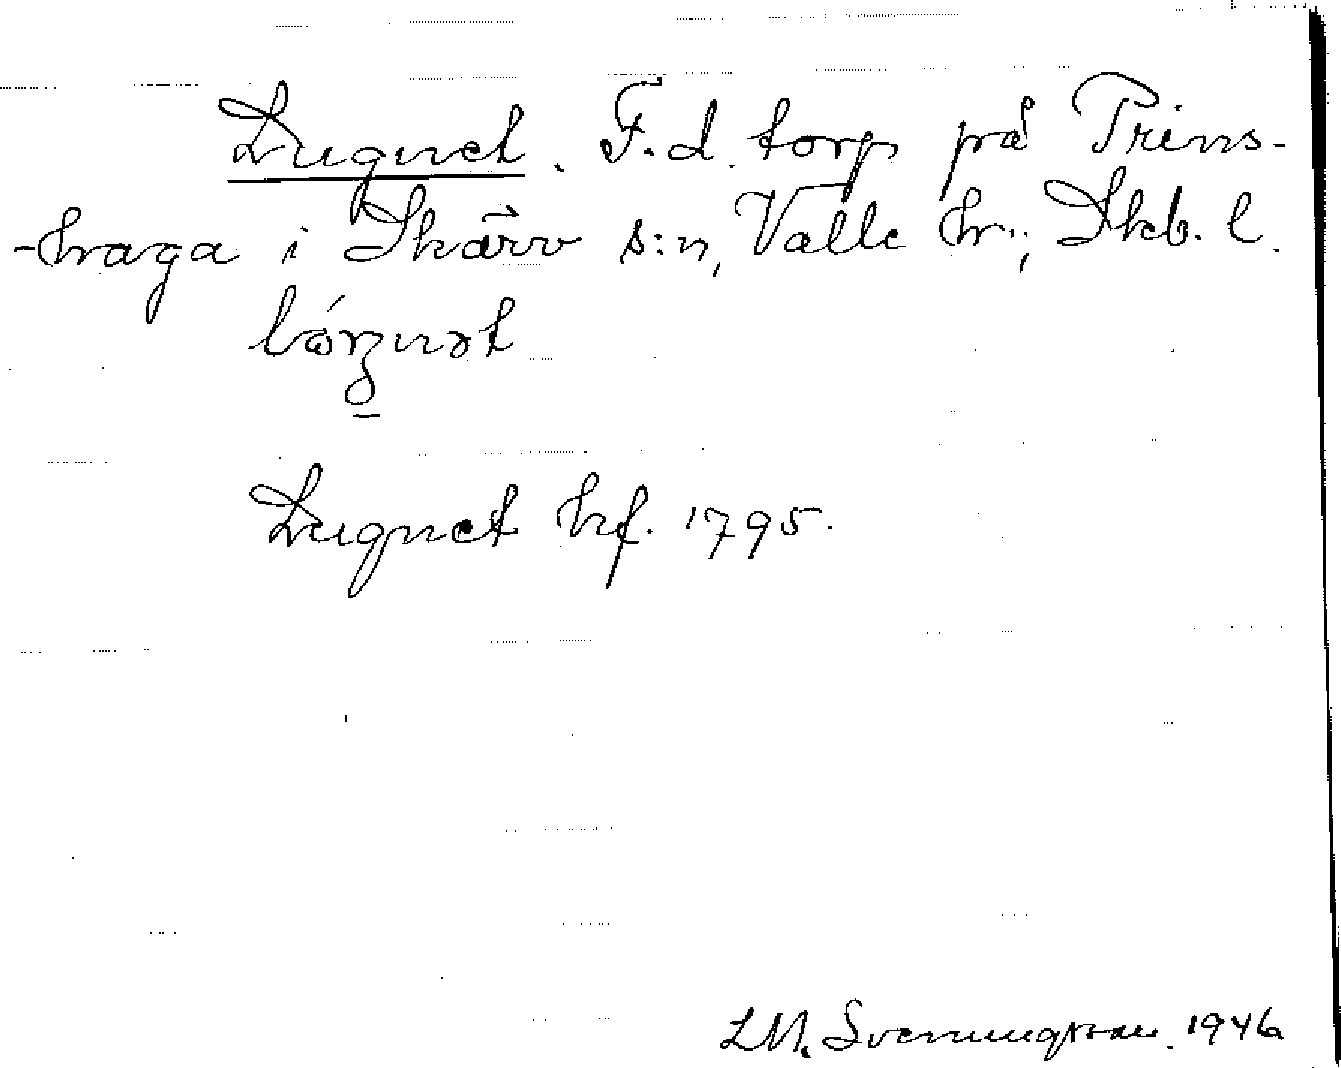 Lugnet. F.d. torp på Prins-
-haga i Skärv s:n, Valle hr, Skb. l.
Lugnet hf. 1795.
L.M. Svenungsson. 1946